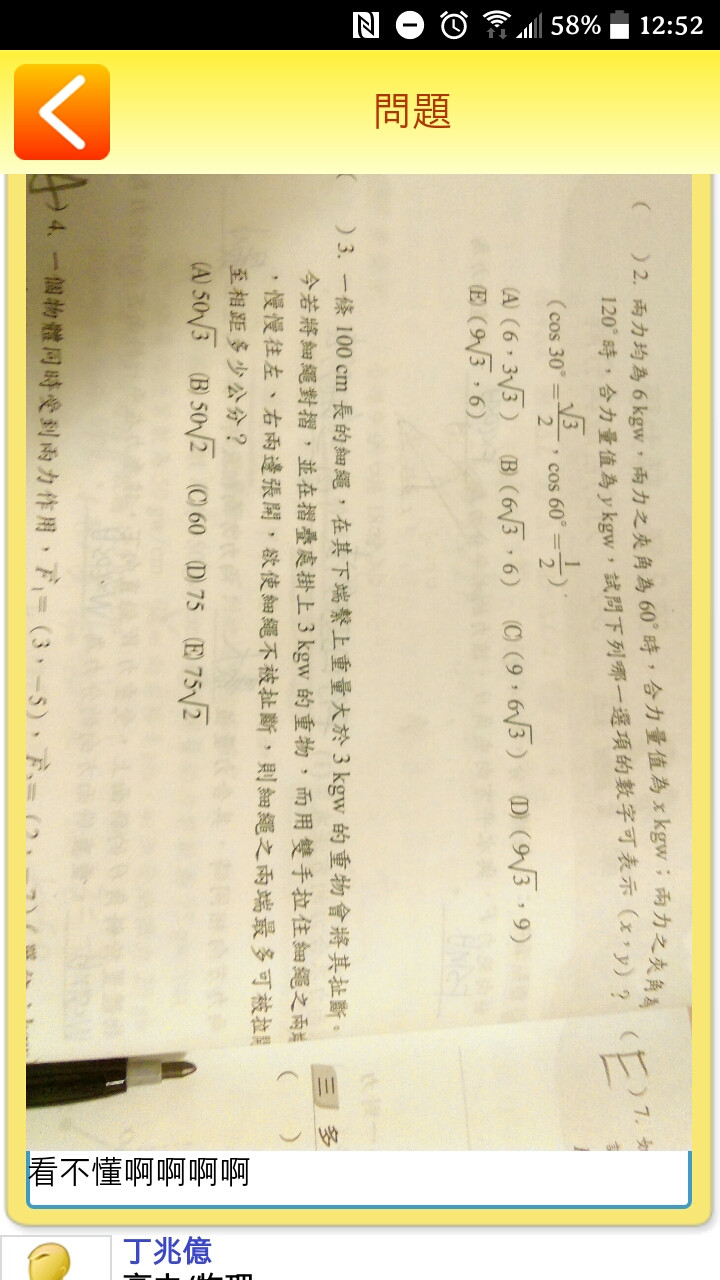 58% 12:52
問題
( )2. 兩力均為 6 kgw，兩力之夾角為 60° 時，合力量值為 x kgw；兩力之夾角為
120° 時，合力量值為 y kgw，試問下列哪一選項的數字可表示 (x，y)？
(cos 30° = √3/2，cos 60° = 1/2)
(A) (6，3√3) (B) (6√3，6) (C) (9，6√3) (D) (9√3，9)
(E) (9√3，6)
( )3. 一條 100 cm 長的細繩，在其下端繫上重量大於 3 kgw 的重物會將其扯斷。
今若將細繩對摺，並在摺疊處掛上 3 kgw 的重物，而用雙手拉住細繩之兩端
，慢慢往左、右兩邊張開，欲使細繩不被扯斷，則細繩之兩端最多可被拉開
至相距多少公分？
(A) 50√3 (B) 50√2 (C) 60 (D) 75 (E) 75√2
)4. 一個物體同時受到兩力作用，F₁=(3，-5)、F₂=(2，-7)
( )7. 如
三 多
( )
看不懂啊啊啊啊
丁兆億
高中/物理